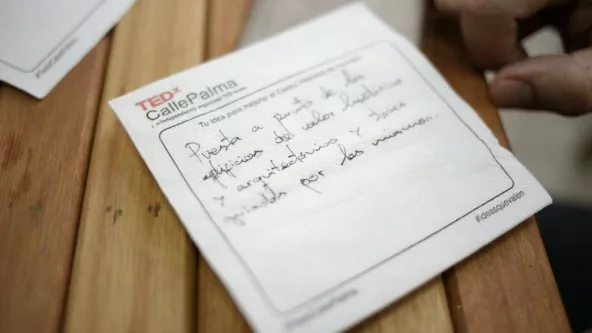 TEDx
CallePalma
x = independently organized TED event
Tu idea para mejorar el Centro
Puesta a punto de los
edificios del valor histórico
y arquitectónico y tours
guiados por los mismos.
#ideasquevalen
TEDxCallePalma
#ideasquevalen